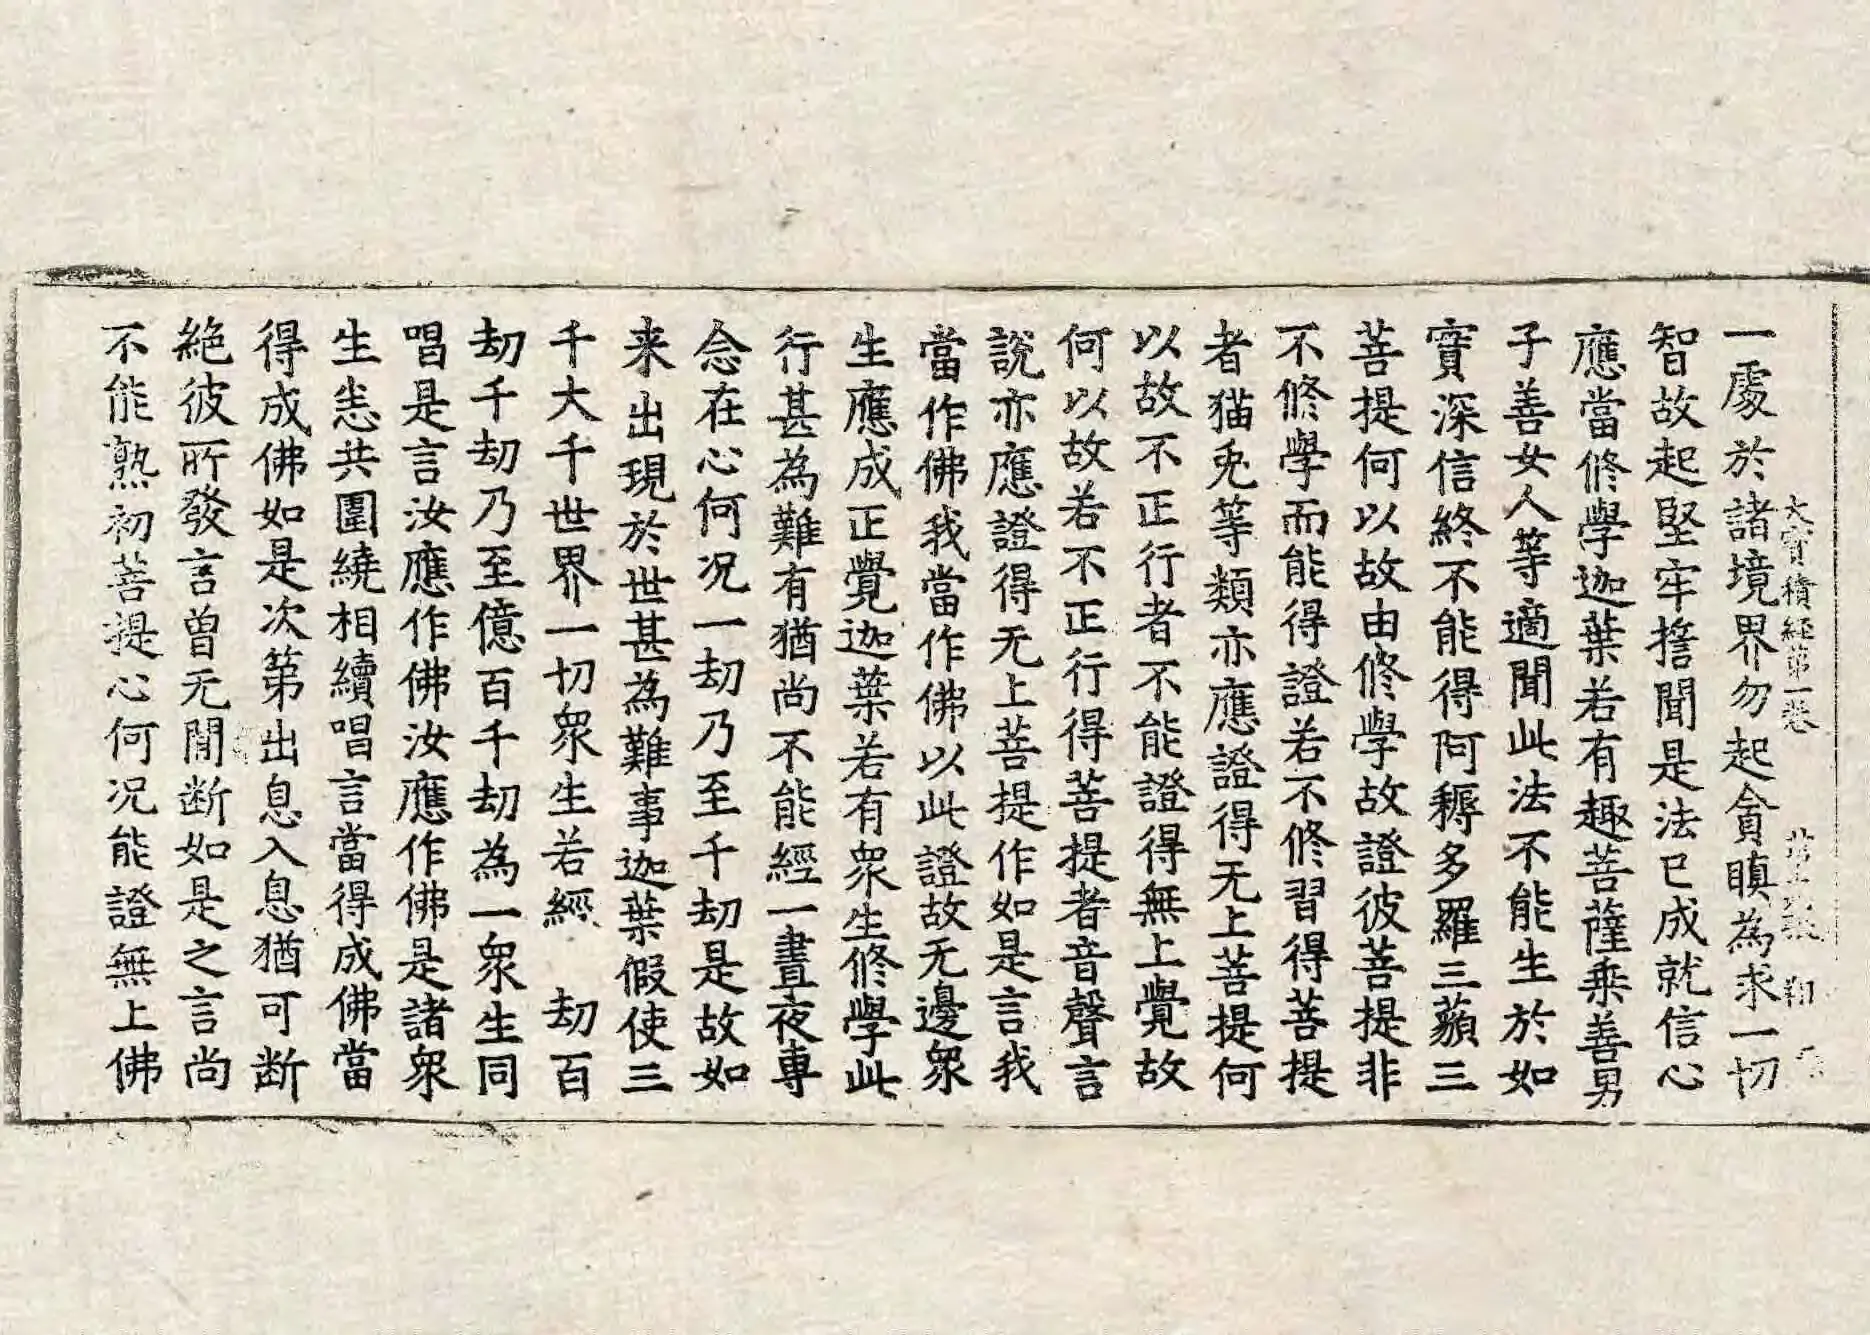 大寶積經第一卷 翔
一處於諸境界勿起貪瞋為求一切
智故起堅牢擔聞是法已成就信心
應當修學迦葉若有趣菩薩乘善男
子善女人等適聞此法不能生於如
實深信終不能得阿耨多羅三藐三
菩提何以故由修學故證彼菩提非
不修學而能得證若不修習得菩提
者猫兎等類亦應證得无上菩提何
以故不正行者不能證得無上覺故
何以故若不正行得菩提者音聲言
說亦應證得无上菩提作如是言我
當作佛我當作佛以此證故无邊衆
生應成正覺迦葉若有衆生修學此
行甚為難有猶尚不能經一晝夜專
念在心何况一劫乃至千劫是故如
来出現於世甚為難事迦葉假使三
千大千世界一切衆生若經 劫百
劫千劫乃至億百千劫為一衆生同
唱是言汝應作佛汝應作佛是諸衆
生恙共圍繞相續唱言當得成佛當
得成佛如是次第出息入息猶可断
絶彼所發言曾无間断如是之言尚
不能熟初菩提心何况能證無上佛